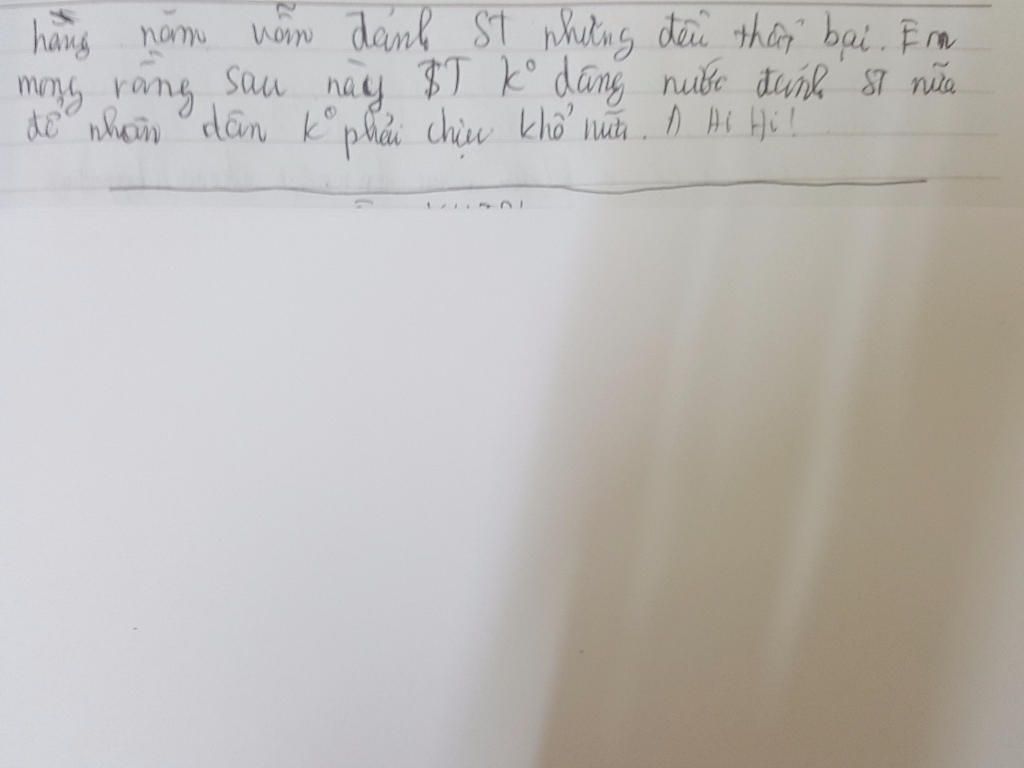 hằng năm vẫn đánh ST nhưng đều thất bại. Em
mong rằng sau này TT kº dâng nước đánh ST nữa
để nhân dân kº phải chịu khổ nữa. A Hi Hi!